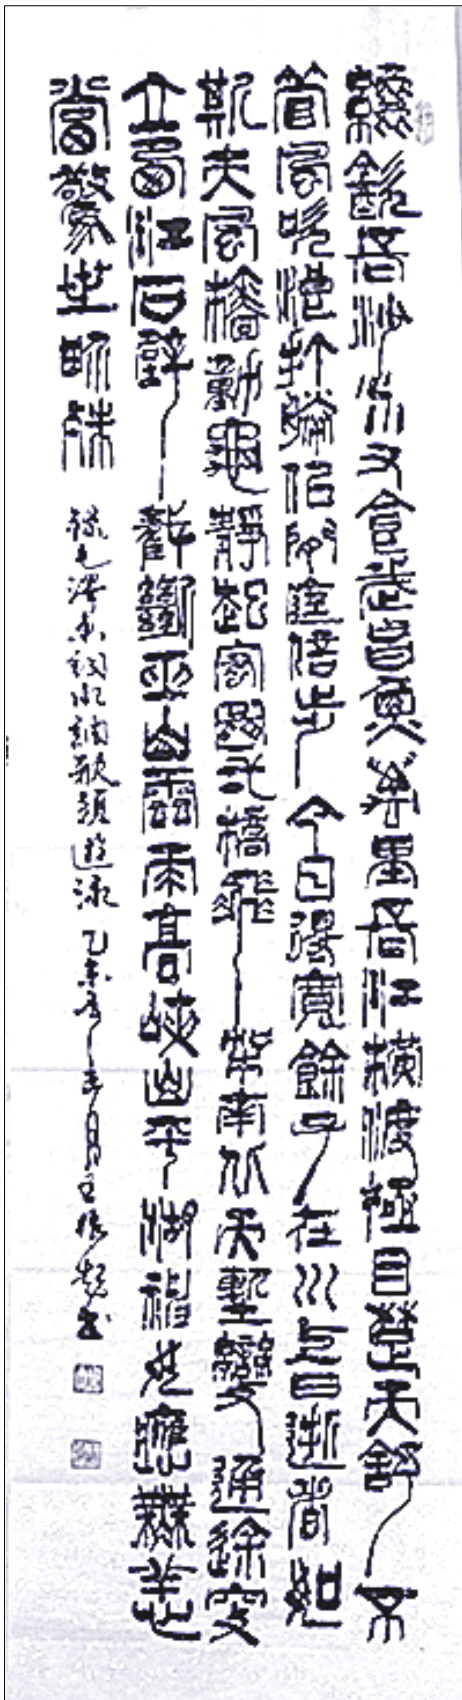 纔飲長沙水又食武昌魚萬里長江橫渡極目楚天舒不
管風吹浪打勝似閒庭信步今日得寬餘子在川上曰逝者如
斯夫風檣動龜靜起宏圖弌橋飛架南北天塹變通途更
立西江石壁截斷巫山雲雨高峽出平湖神女應無恙
當驚世界殊 錄毛澤東詞水調歌頭游泳 乙未年月王振書